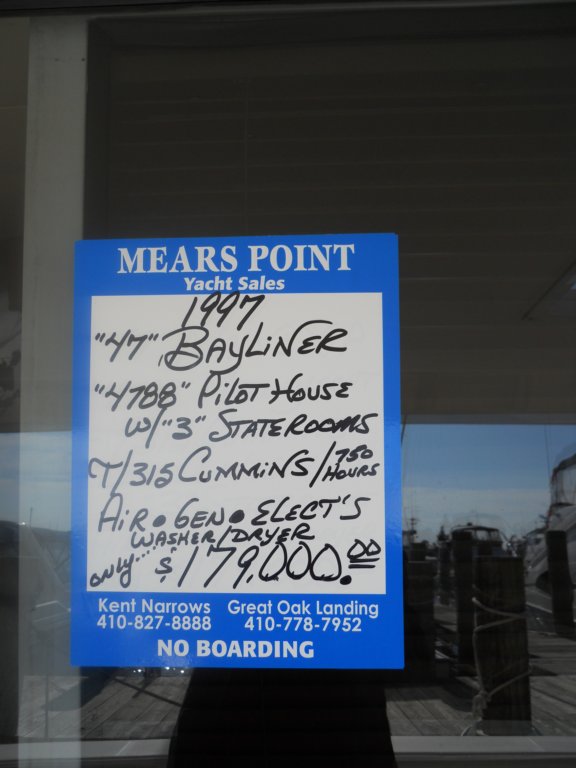 MEARS POINT
Yacht Sales
1997
"47" BAYLINER
"4788" PILOT HOUSE
W/"3" STATEROOMS
T/315 CUMMINS/750 HOURS
AIR • GEN • ELECT'S
WASHER/DRYER
ONLY.... $179,000.00
Kent Narrows Great Oak Landing
410-827-8888 410-778-7952
NO BOARDING